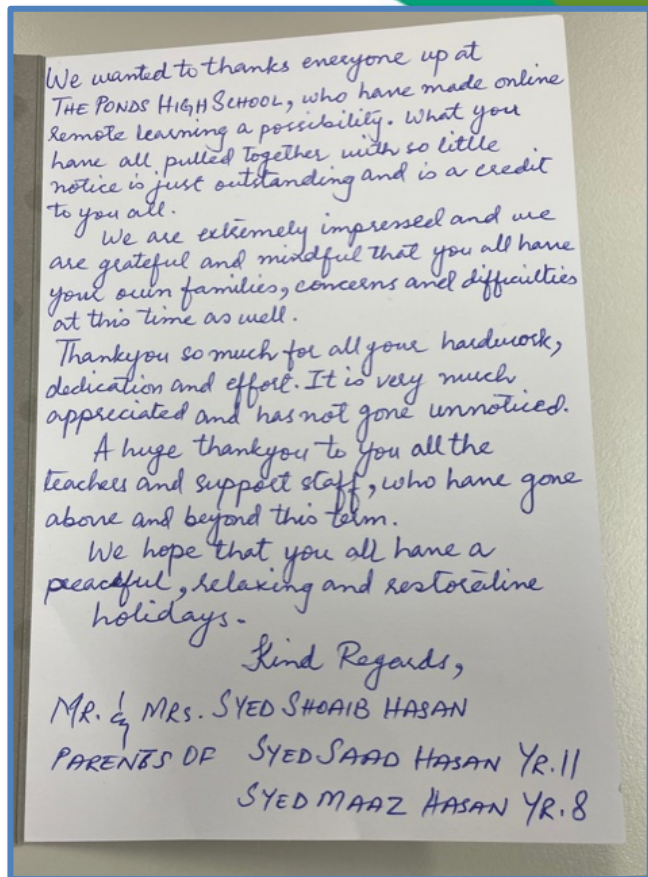 We wanted to thanks everyone up at
THE PONDS HIGH SCHOOL, who have made online
remote learning a possibility. What you
have all pulled together with so little
notice is just outstanding and is a credit
to you all.
We are extremely impressed and we
are grateful and mindful that you all have
your own families, concerns and difficulties
at this time as well.
Thankyou so much for all your hardwork,
dedication and effort. It is very much
appreciated and has not gone unnoticed.
A huge thankyou to you all the
teachers and support staff, who have gone
above and beyond this term.
We hope that you all have a
peaceful, relaxing and restorative
holidays.
Kind Regards,
MR. & MRS. SYED SHOAIB HASAN
PARENTS OF SYED SAAD HASAN YR.11
SYED MAAZ HASAN YR.8